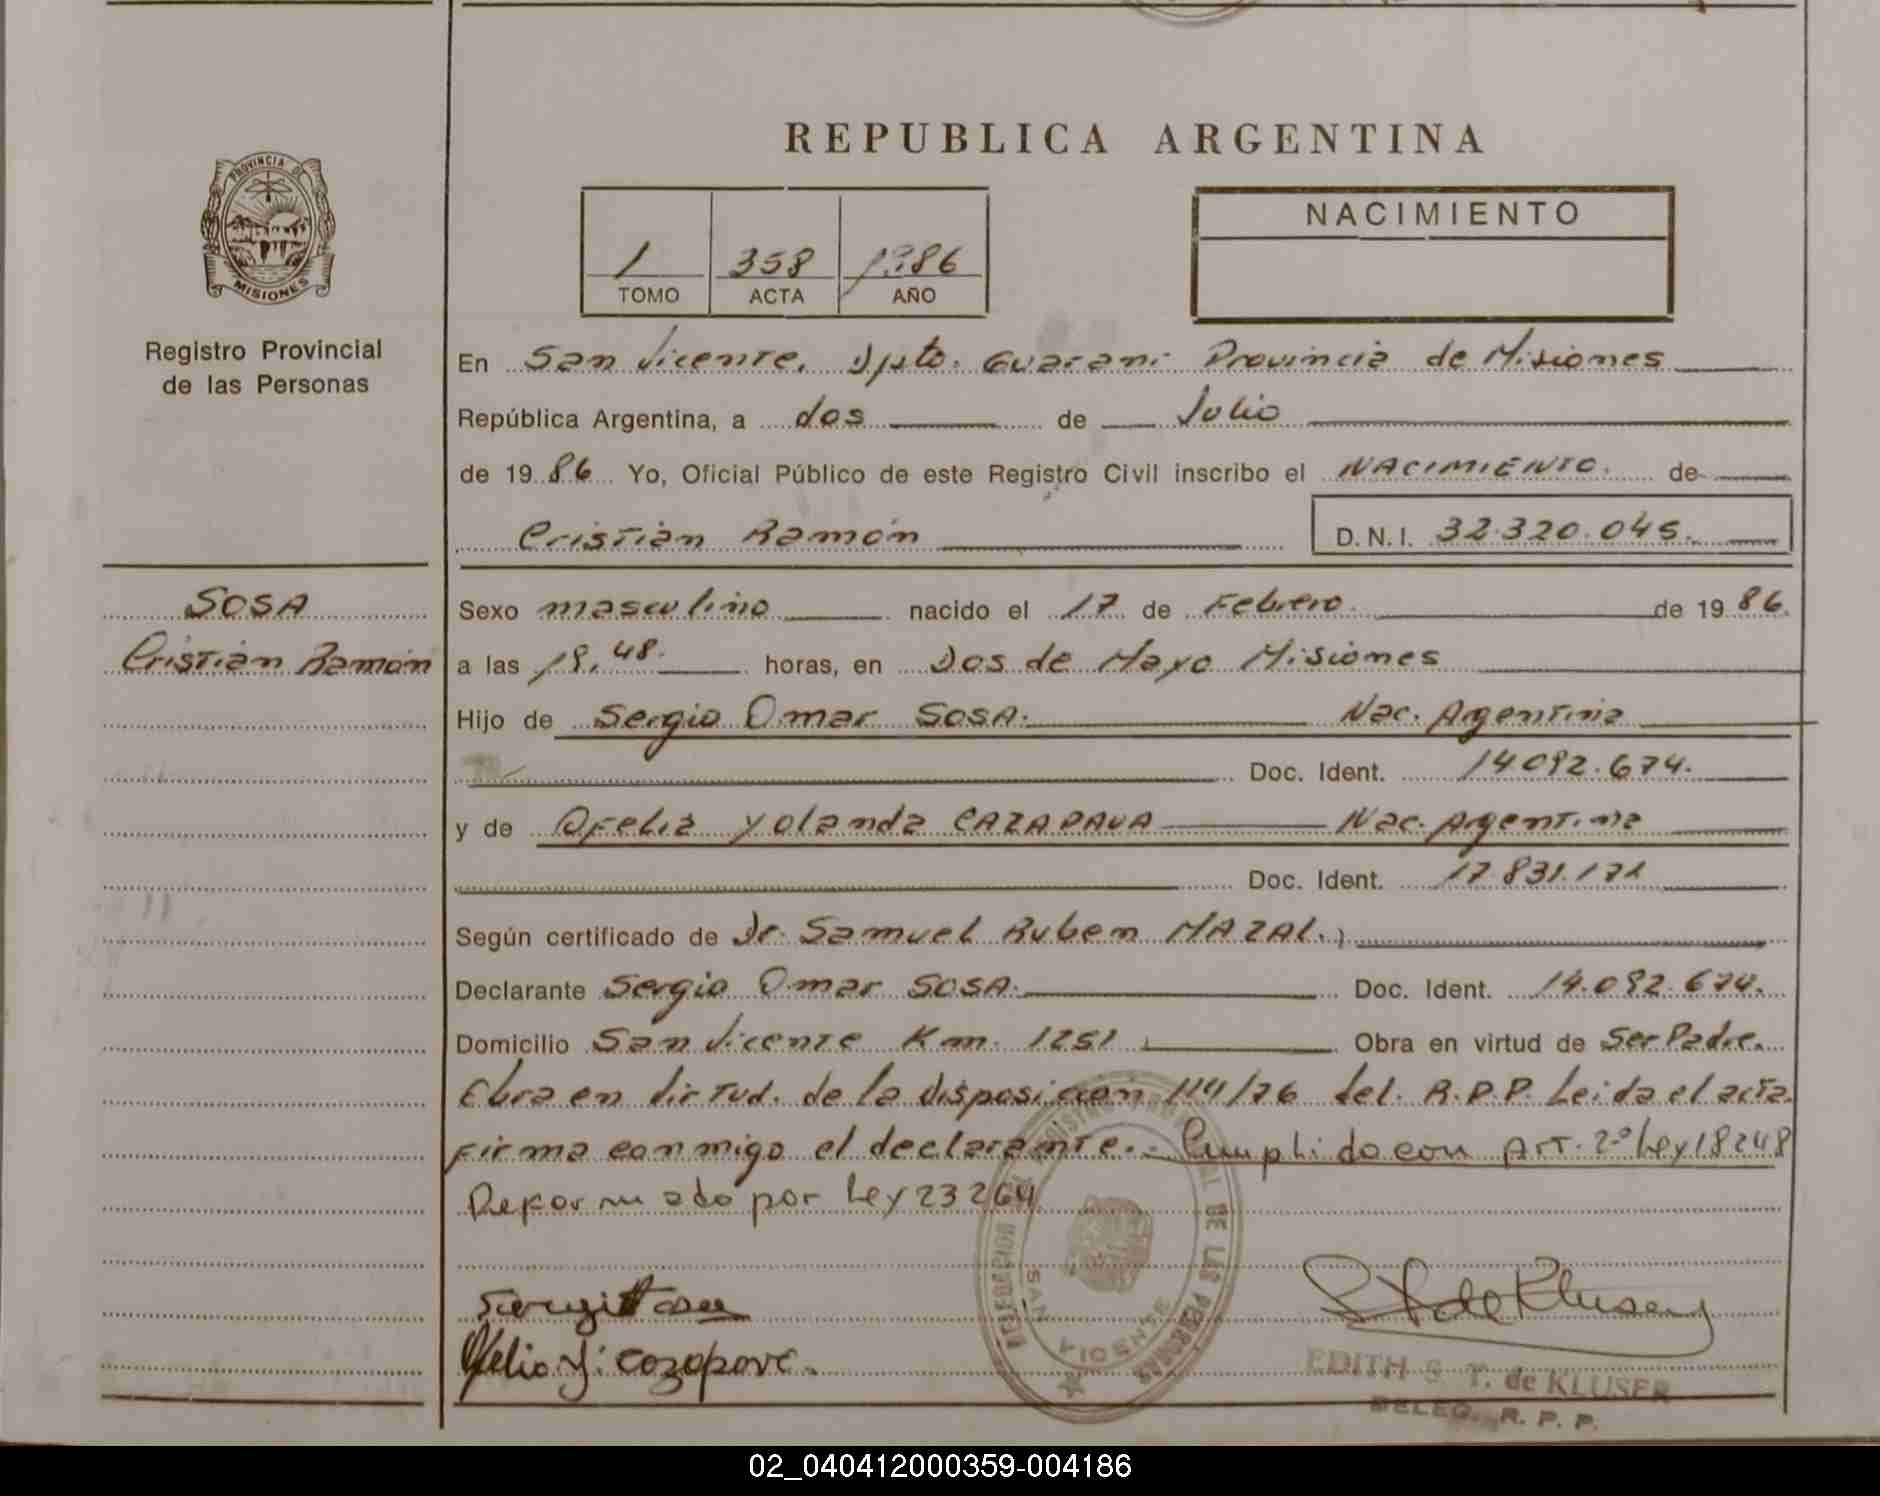 REPUBLICA ARGENTINA
PROVINCIA DE
MISIONES
Registro Provincial
de las Personas
1 358 1986
TOMO ACTA AÑO
NACIMIENTO
En San Vicente, Dpto. Guarani Provincia de Misiones
República Argentina, a dos de Julio
de 1986 Yo, Oficial Público de este Registro Civil inscribo el NACIMIENTO. de
Cristian Ramón D.N.I. 32.320.045.
SOSA
Cristian Ramón
Sexo masculino nacido el 17 de Febrero de 1986.
a las 19,48 horas, en Dos de Mayo Misiones
Hijo de Sergio Omar SOSA. Nac. Argentina
Doc. Ident. 14.092.674.
y de Ofelia Yolanda CAZAPAVA Nac. Argentina
Doc. Ident. 17.831.171
Según certificado de Dr. Samuel Ruben MAZAL.
Declarante Sergio Omar SOSA. Doc. Ident. 14.092.674.
Domicilio San Vicente Km. 1251 Obra en virtud de Ser Padre.
Obra en virtud. de la Disposición 114/76 del. R.P.P. Leida el acta.
Firma conmigo el declarante.- Cumplido con Art. 2º Ley 18248
Reformado por Ley 23264
Ofelia Y. Cazapava.
REGISTRO PROVINCIAL DE LAS PERSONAS
SAN VICENTE
EDITH S. T. de KLUSER
DELEG. R. P. P.
02_040412000359-004186